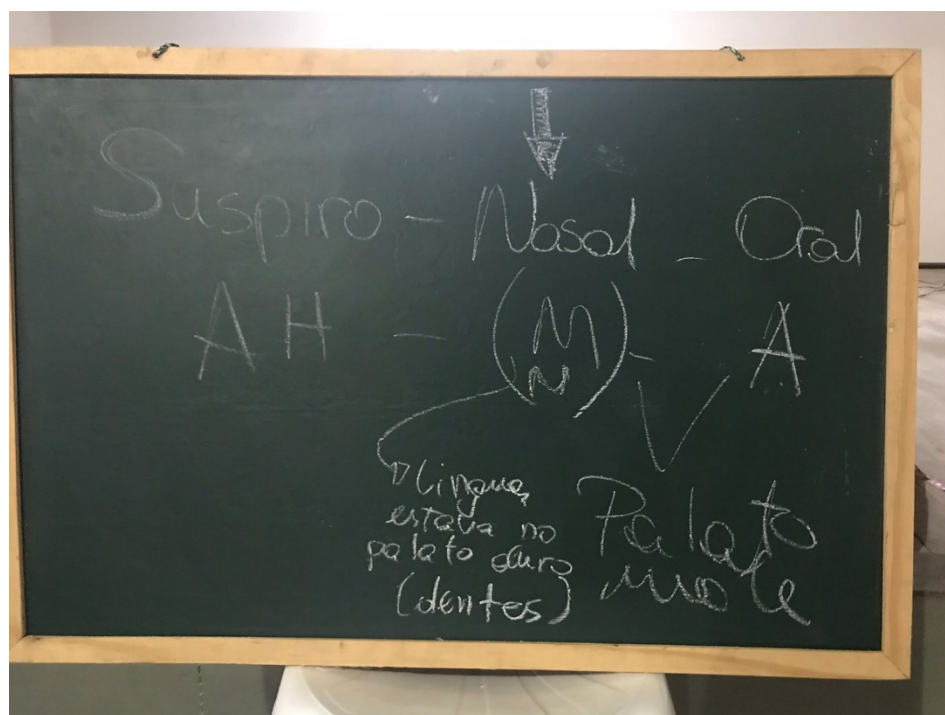 Suspiro - Nasal - Oral
AH - (M N) - A
Lingua
estava no
palato duro
(dentes)
Palato
mole